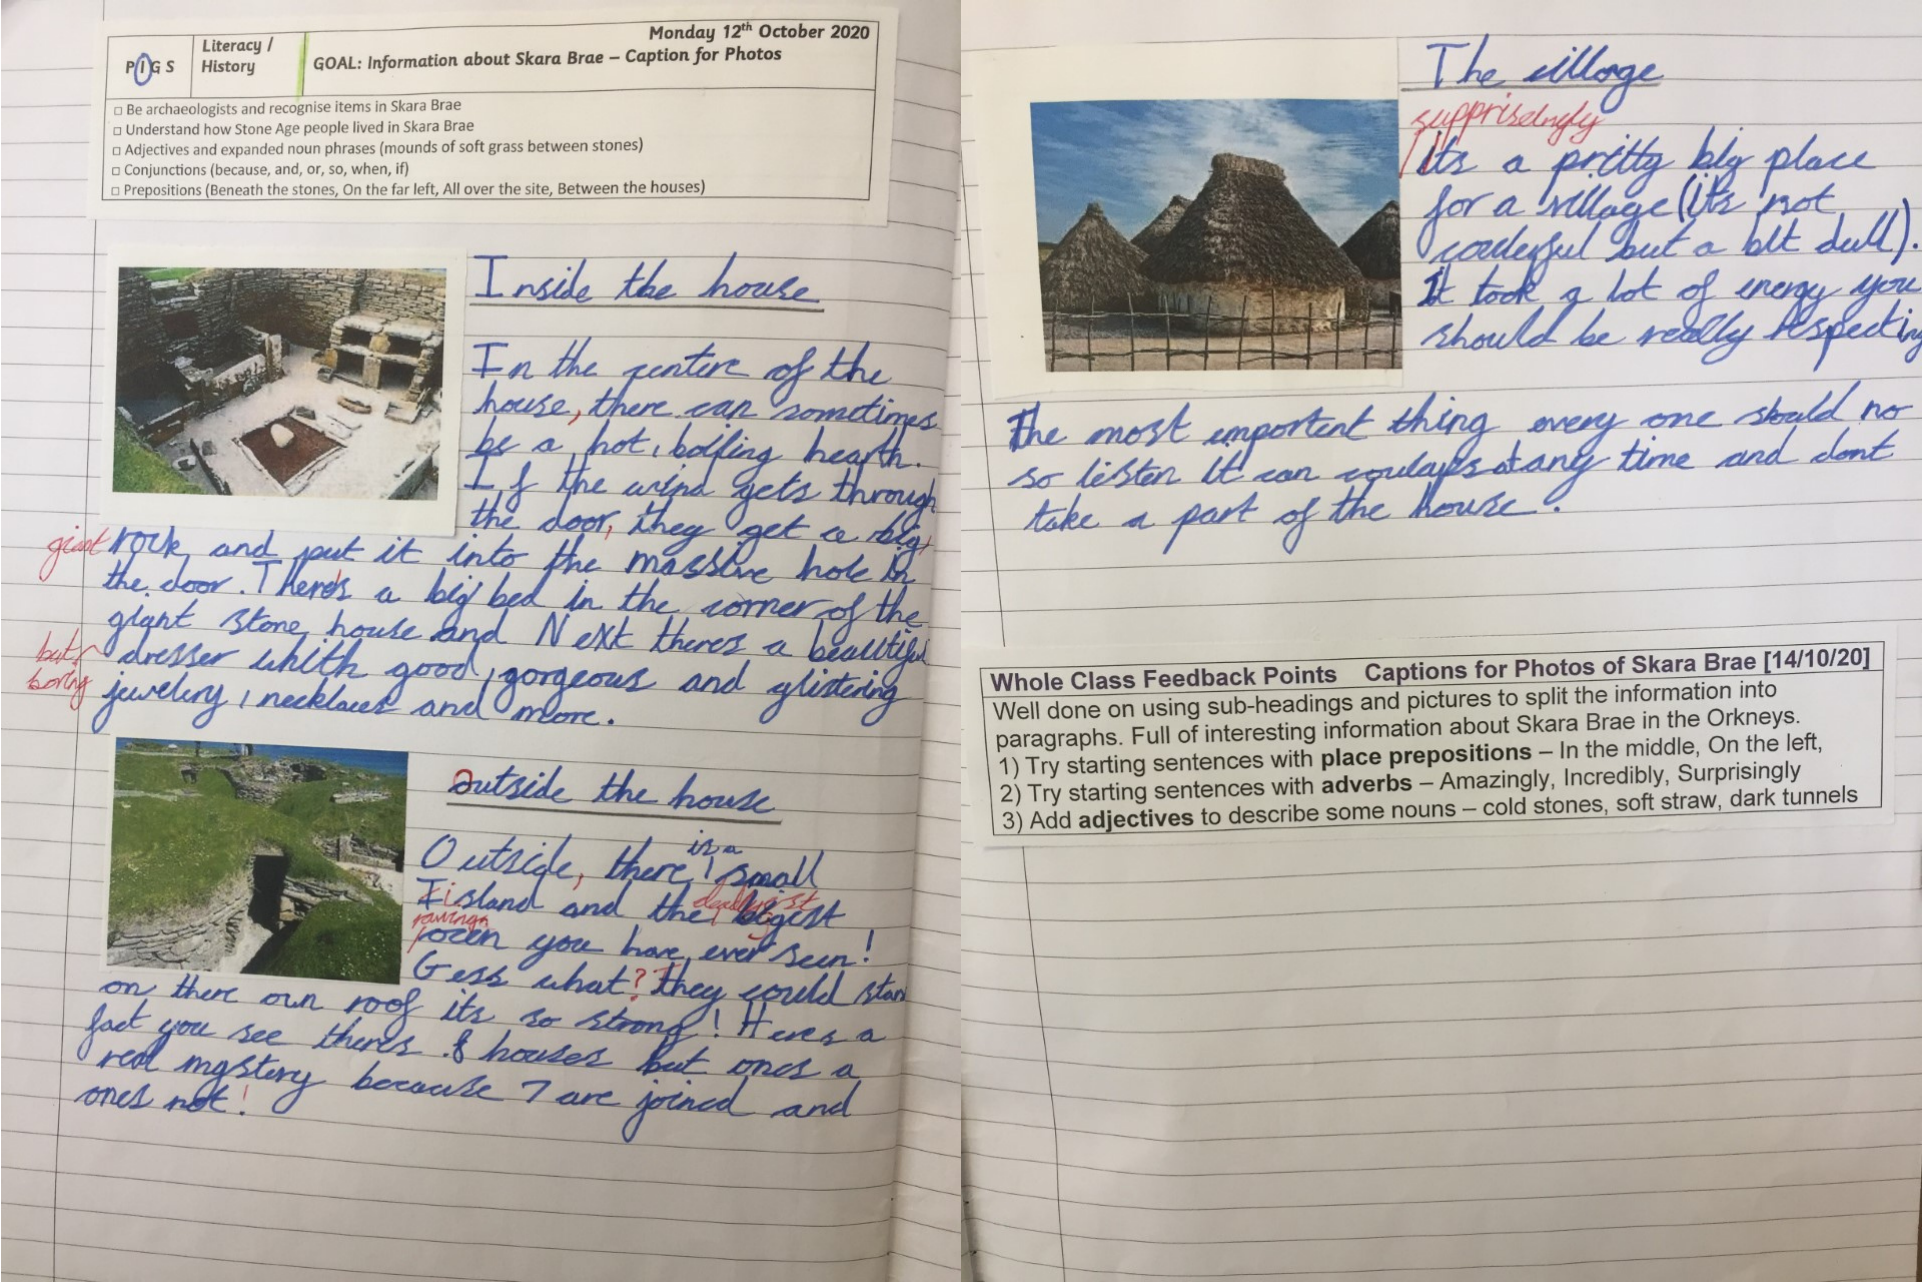 Monday 12th October 2020
PIGS
Literacy /
History
GOAL: Information about Skara Brae – Caption for Photos
□ Be archaeologists and recognise items in Skara Brae
□ Understand how Stone Age people lived in Skara Brae
□ Adjectives and expanded noun phrases (mounds of soft grass between stones)
□ Conjunctions (because, and, or, so, when, if)
□ Prepositions (Beneath the stones, On the far left, All over the site, Between the houses)
Inside the house
In the centere of the
house, there can sometimes
be a hot, boiling hearth.
If the wind gets through
the door, they get a big,
giant rock and put it into the massive hole in
the door. There's a big bed in the corner of the
giant stone house and Next theres a beautiful
but boring
dresser whith good, gorgeous and glistering
jewelery, necklaces and more.
Outside the house
is a
Outside, there small
island and the deadlyest bigest
rawingn
ocen you have ever seen!
Gess what? They could stan
on there own roof its so strong! Heres a
fact you see theres 8 houses but ones a
real mystery because 7 are joined and
ones not!
The village
supprisedngly
Its a pritty big place
for a village (its not
coulerful but a bit dull).
It took a lot of energy you
should be really respecting
The most important thing every one should no
so listen It can coulaps at any time and dont
take a part of the house.
Whole Class Feedback Points Captions for Photos of Skara Brae [14/10/20]
Well done on using sub-headings and pictures to split the information into
paragraphs. Full of interesting information about Skara Brae in the Orkneys.
1) Try starting sentences with place prepositions – In the middle, On the left,
2) Try starting sentences with adverbs – Amazingly, Incredibly, Surprisingly
3) Add adjectives to describe some nouns – cold stones, soft straw, dark tunnels